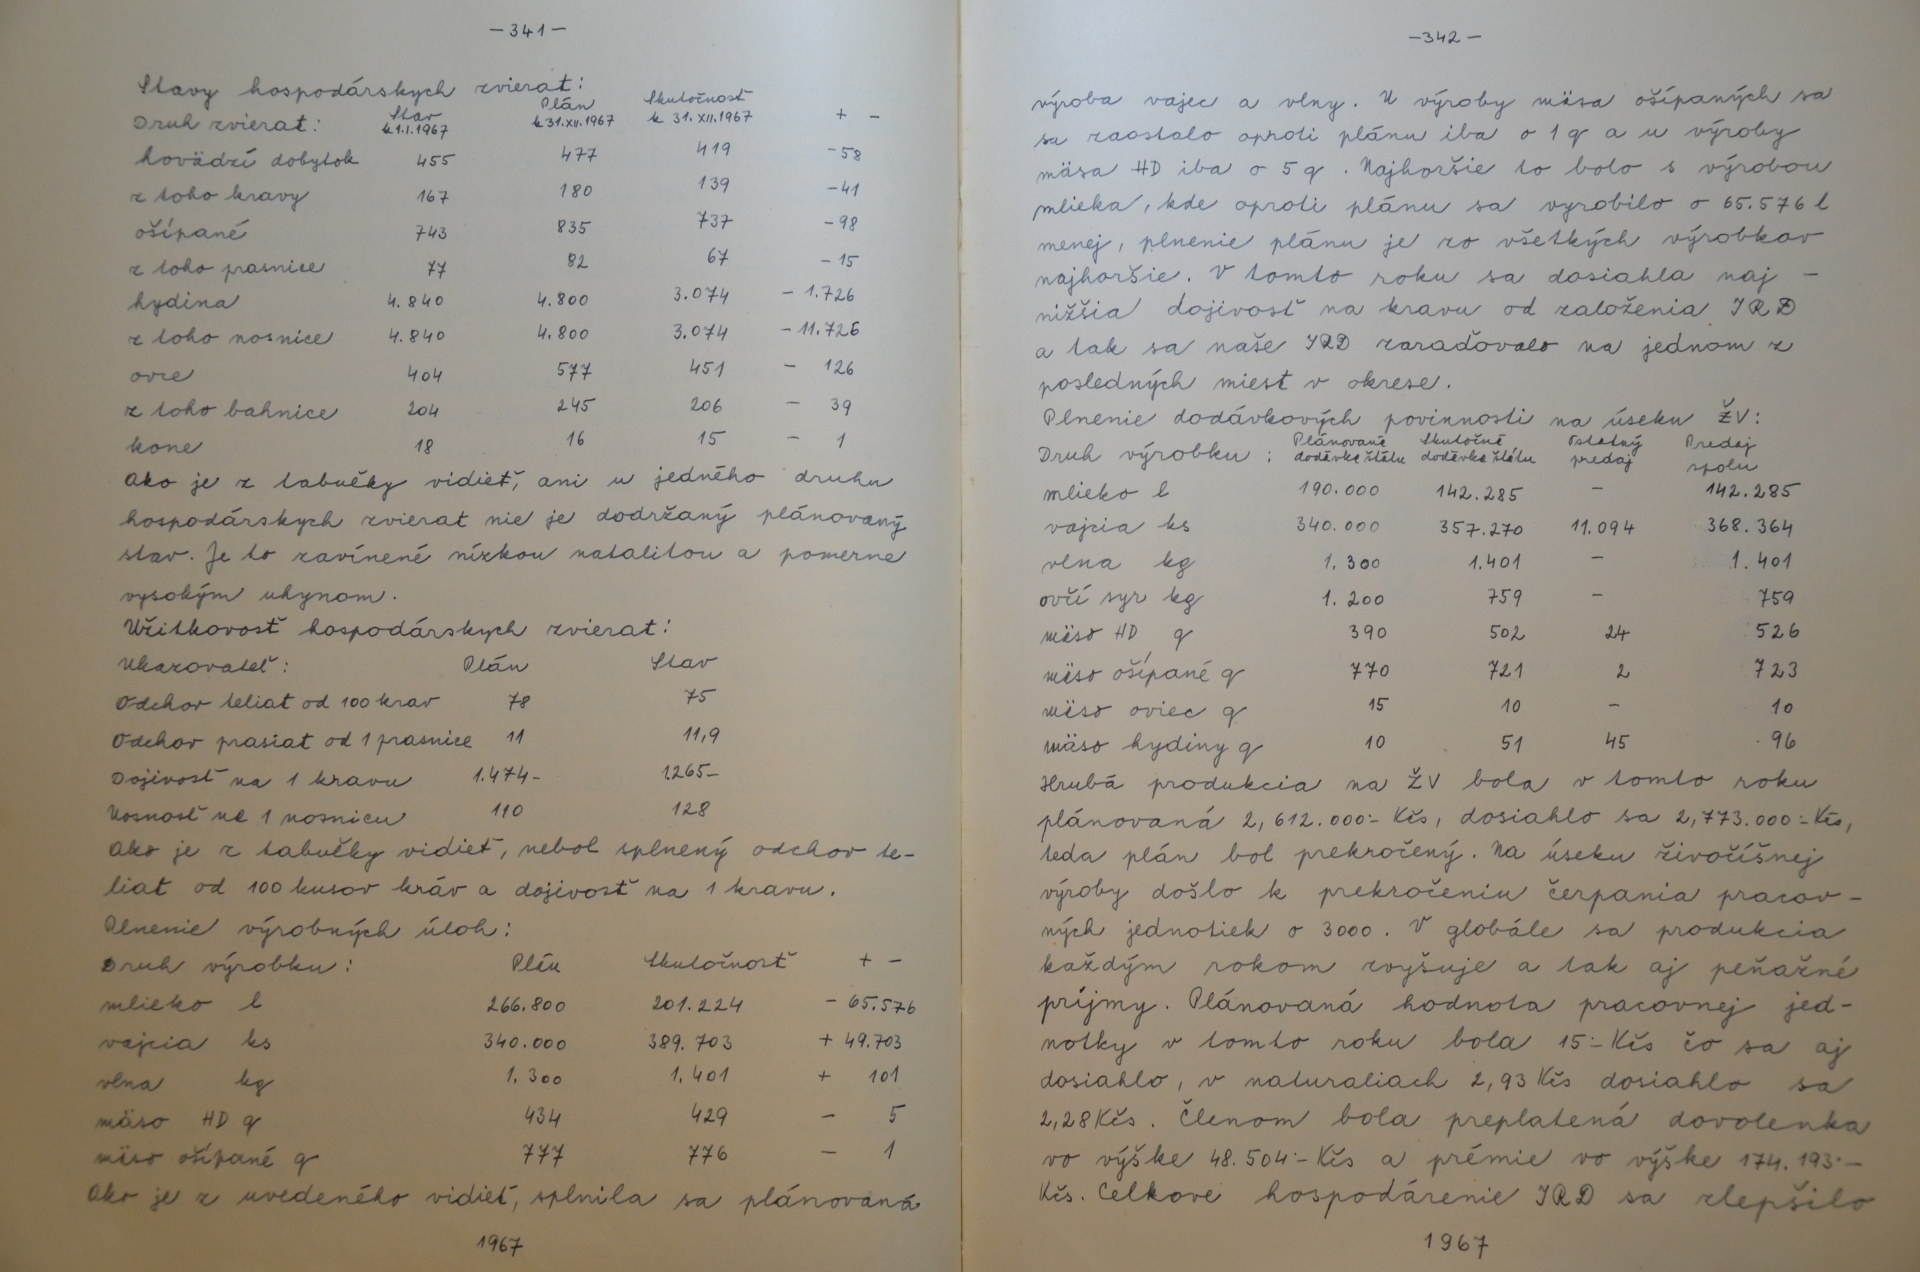 —341—
Stavy hospodárskych zvierat:
Druh zvierat: Stav k 1.I.1967 Plán k 31.XII.1967 Skutočnosť k 31.XII.1967 + -
hovädzí dobytok 455 477 419 -58
z toho kravy 167 180 139 -41
ošípané 743 835 737 -98
z toho prasnice 77 82 67 -15
hydina 4.840 4.800 3.074 - 1.726
z toho nosnice 4.840 4.800 3.074 - 11.726
ovce 404 577 451 - 126
z toho bahnice 204 245 206 - 39
kone 18 16 15 - 1
Ako je z tabuľky vidieť, ani u jedného druhu
hospodárskych zvierat nie je dodržaný plánovaný
stav. Je to zavinené nízkou natalitou a pomerne
vysokým uhynom.
Užitkovosť hospodárskych zvierat:
Ukazovateľ: Plán Stav
Odchov teliat od 100 krav 78 75
Odchov prasiat od 1 prasnice 11 11,9
Dojivosť na 1 kravu 1.474- 1265-
Nosnosť na 1 nosnicu 110 128
Ako je z tabuľky vidieť, nebol splnený odchov te-
liat od 100 kusov kráv a dojivosť na 1 kravu.
Plnenie výrobných úloh:
Druh výrobku: Plán Skutočnosť + -
mlieko l 266.800 201.224 - 65.576
vajcia ks 340.000 389.703 + 49.703
vlna kg 1.300 1.401 + 101
mäso HD q 434 429 - 5
mäso ošípané q 777 776 - 1
Ako je z uvedeného vidieť, splnila sa plánovaná
1967
—342—
výroba vajec a vlny. U výroby mäsa ošípaných sa
sa zaostalo oproti plánu iba o 1 q a u výroby
mäsa HD iba o 5 q. Najhoršie to bolo s výrobou
mlieka, kde oproti plánu sa vyrobilo o 65.576 l
menej, plnenie plánu je zo všetkých výrobkov
najhoršie. V tomto roku sa dosiahla naj-
nižšia dojivosť na kravu od založenia JRD
a tak sa naše JRD zaraďovalo na jednom z
posledných miest v okrese.
Plnenie dodávkových povinností na úseku ŽV:
Druh výrobku: Plánovaná dodávka štátu Skutočná dodávka štátu Ostatný predaj Predaj spolu
mlieko l 190.000 142.285 - 142.285
vajcia ks 340.000 357.270 11.094 368.364
vlna kg 1.300 1.401 - 1.401
ovčí syr kg 1.200 759 - 759
mäso HD q 390 502 24 526
mäso ošípané q 770 721 2 723
mäso oviec q 15 10 - 10
mäso hydiny q 10 51 45 96
Hrubá produkcia na ŽV bola v tomto roku
plánovaná 2,612.000:- Kčs, dosiahlo sa 2,773.000:- Kčs,
teda plán bol prekročený. Na úseku živočíšnej
výroby došlo k prekročeniu čerpania pracov-
ných jednotiek o 3000. V globále sa produkcia
každým rokom zvyšuje a tak aj peňažné
príjmy. Plánovaná hodnota pracovnej jed-
notky v tomto roku bola 15:- Kčs čo sa aj
dosiahlo, v naturaliach 2,93 Kčs dosiahlo sa
2,28 Kčs. Členom bola preplatená dovolenka
vo výške 48.504:- Kčs a prémie vo výške 174.193:-
Kčs. Celkove hospodárenie JRD sa zlepšilo
1967